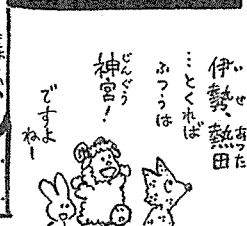 伊勢、熱田
…とくれば
ふつうは
神宮！
ですよ
ねー